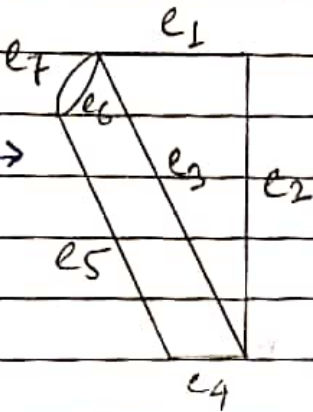 e1
e7
e6
→
e3
e2
e5
e4